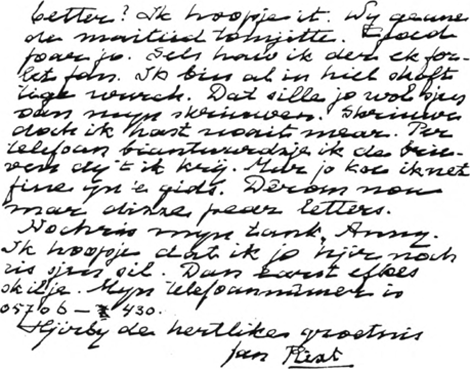 better? Ik hoopje it. Wy geane
de maitiid temjitte. Eigoed
foar jo. Sels haw ik der ek for-
let fan. Ik bin al in hiel skoft
wurch. Dat sille jo wol sjen
oan myn skriuwen. Skriuwe
doch ik hast noait mear. Per
telefoan biantwurdzje ik de brie-
ven dy't ik krij. Mar jo koe ik net
fine yn 'e gids. Dêrom nou
mar dizze pear letters.
Nochris myn tank, Anny.
Ik hoopje dat ik jo hjir noch
ris sjen sil. Dan earst efkes
skilje. Myn telefoannûmer is
05706 - 430.
Hjirby de hertlikes groetnis
Jan